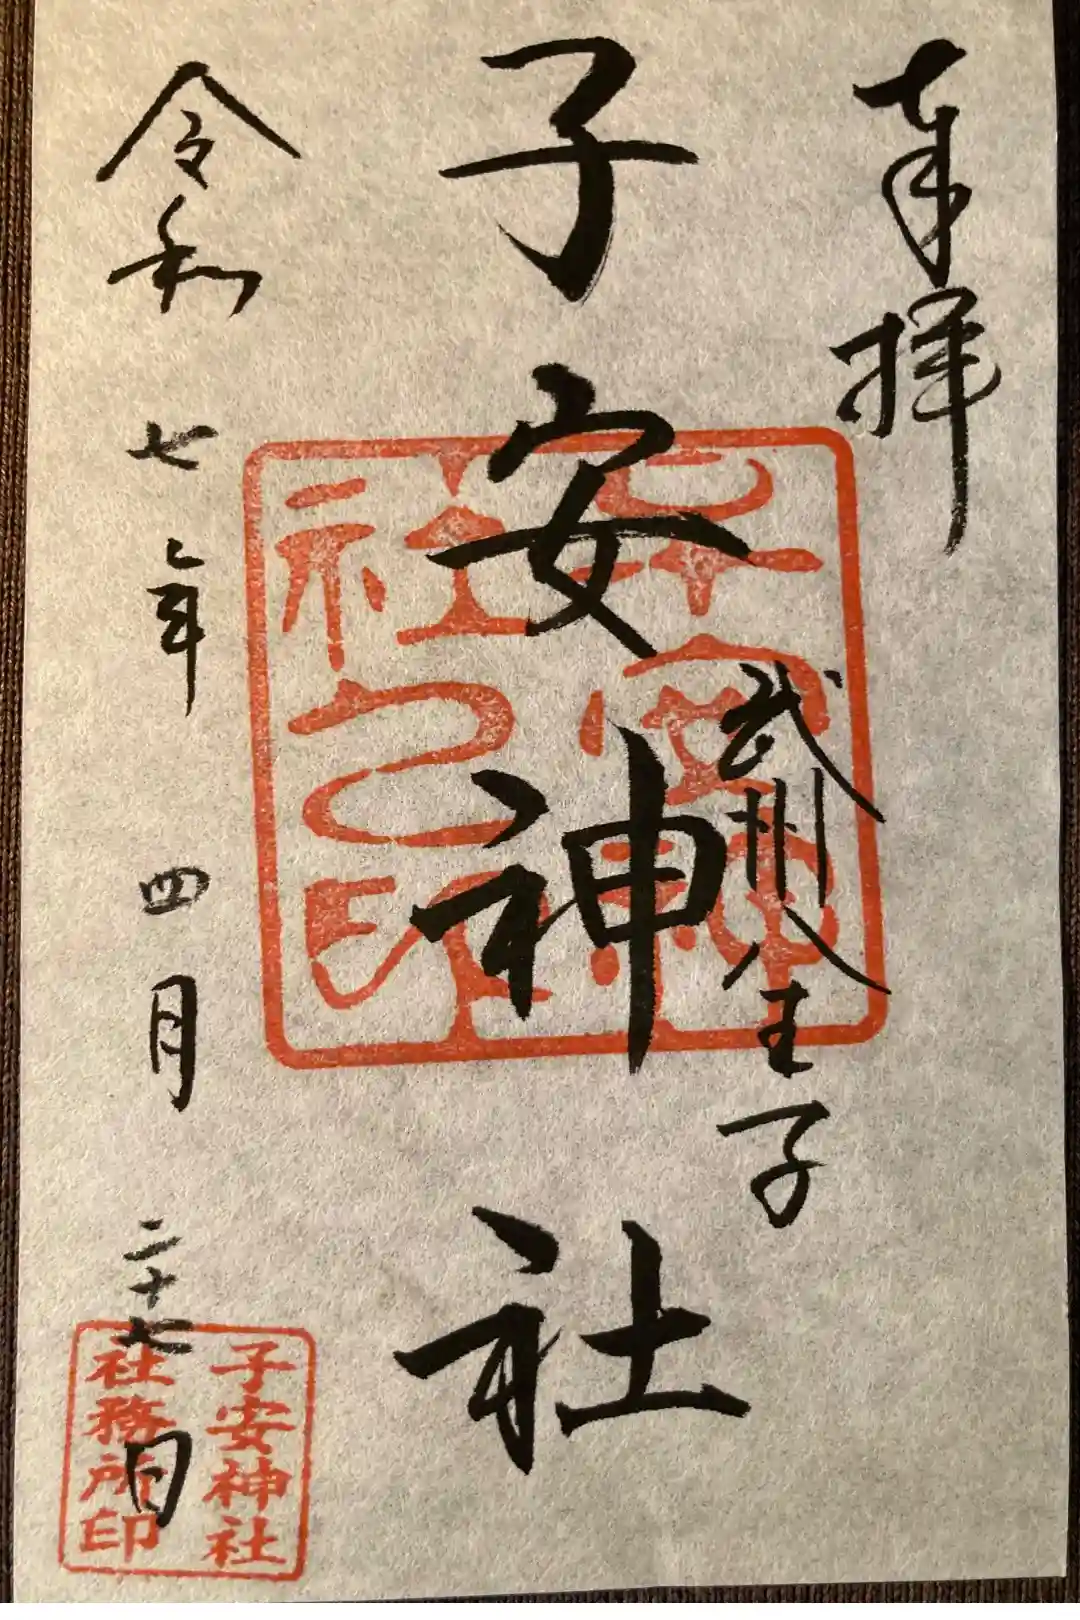 奉拝
武州八王子
子安神社
令和七年四月二十七日
子安神社
社之印
子安神社
社務所印